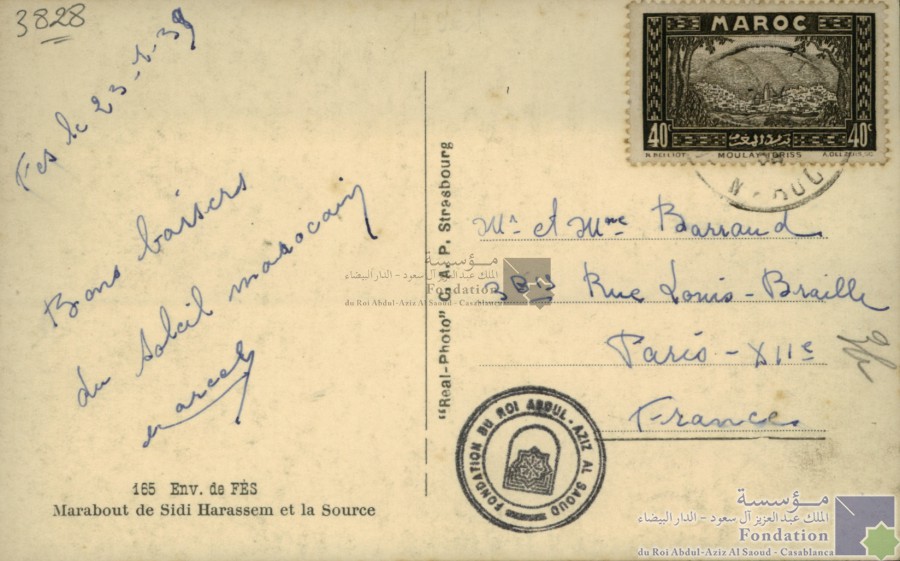 3828
Fes le 23-1-39
Bons baisers
du soleil marocain
Marcel
165 Env. de FÈS
Marabout de Sidi Harassem et la Source
"Real-Photo" C. A. P. Strasbourg
MAROC
40c 40c
MOULAY IDRISS
Mr et Mme Barraud
Rue Louis-Braille
Paris-XIIe
France
FONDATION DU ROI ABDUL-AZIZ AL SAOUD
مؤسسة
الملك عبد العزيز آل سعود - الدار البيضاء
Fondation
du Roi Abdul-Aziz Al Saoud - Casablanca
مؤسسة
الملك عبد العزيز آل سعود - الدار البيضاء
Fondation
du Roi Abdul-Aziz Al Saoud - Casablanca